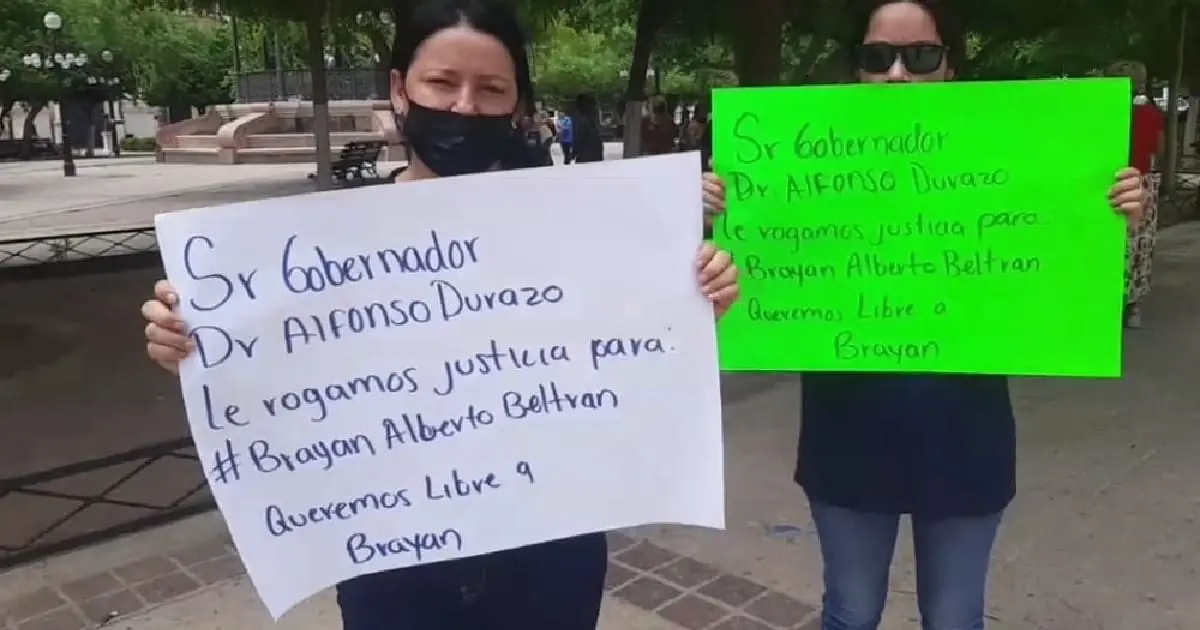 Sr Gobernador
Dr Alfonso Durazo
le rogamos justicia para:
#Brayan Alberto Beltran
Queremos Libre a
Brayan
Sr Gobernador
Dr Alfonso Durazo
le rogamos justicia para
Brayan Alberto Beltran
Queremos Libre a
Brayan